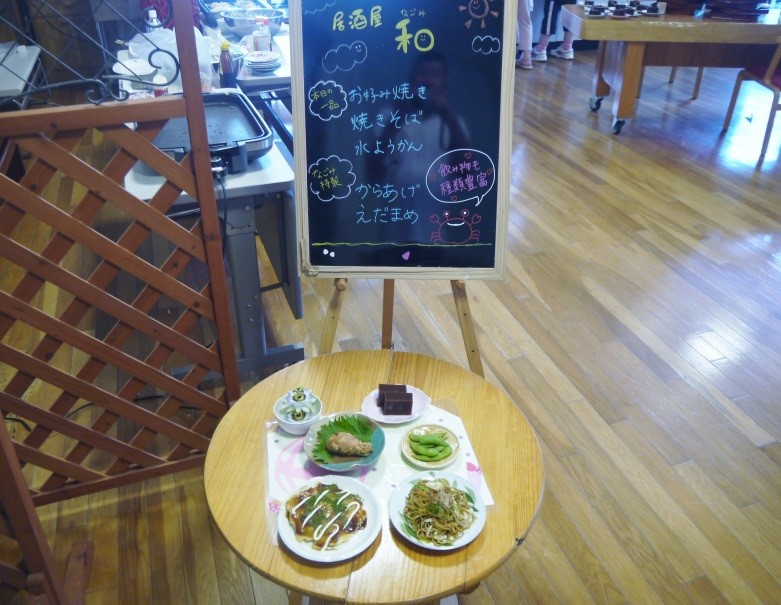 居酒屋 なごみ
和
本日の
一品
お好み焼き
焼きそば
水ようかん
なごみ
特製
からあげ
えだまめ
飲み物も
種類豊富